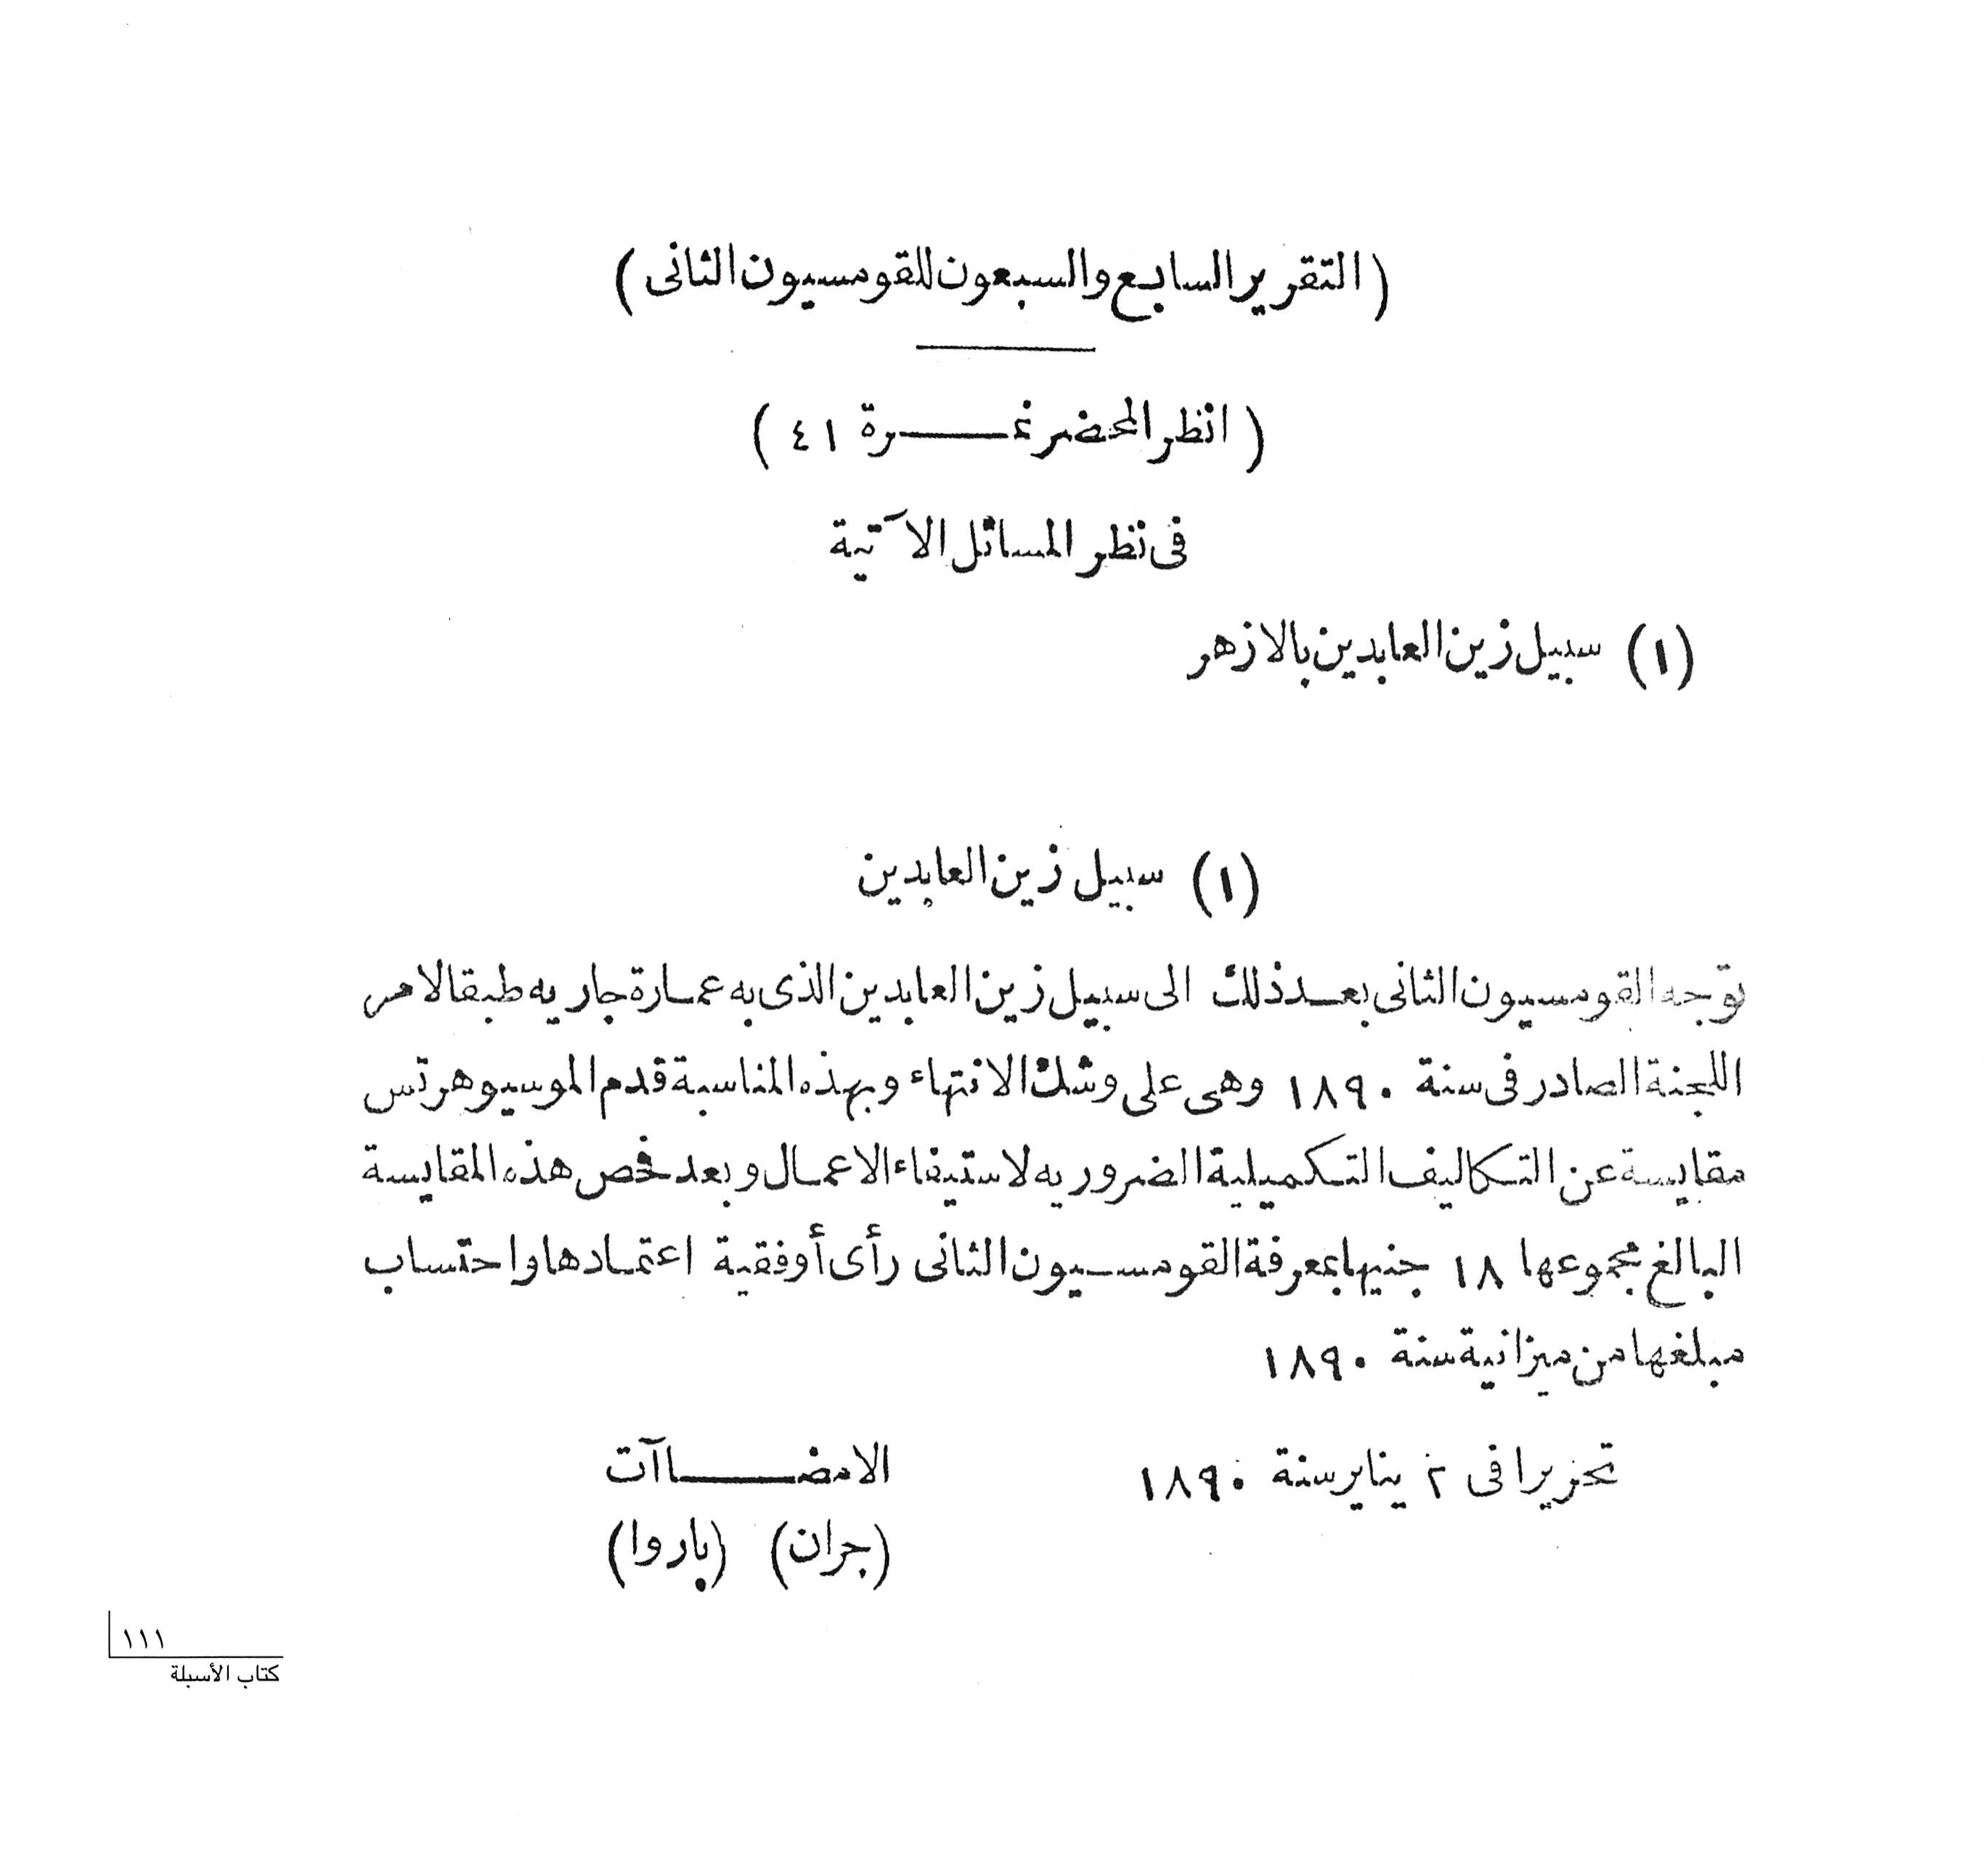 (التقرير السابع والسبعون للقومسيون الثانى)
(انظر المحضر نمرة ٤١)
فى نظر المسائل الآتية
(١) سبيل زين العابدين بالازهر
(١) سبيل زين العابدين
توجه القومسيون الثانى بعد ذلك الى سبيل زين العابدين الذى به عمارة جاريه طبقا لامر
اللجنة الصادر فى سنة ١٨٩٠ وهى على وشك الانتهاء وبهذه المناسبة قدم الموسيو هرتس
مقايسة عن التكاليف التكميلية الضروريه لاستيفاء الاعمال وبعد فحص هذه المقايسة
البالغ مجموعها ١٨ جنيها بمعرفة القومسيون الثانى رأى أوفقية اعتمادها واحتساب
مبلغها من ميزانية سنة ١٨٩٠
تحريرا فى ٢ يناير سنة ١٨٩٠
الامضاآت
(جران) (باروا)
١١١
كتاب الأسبلة